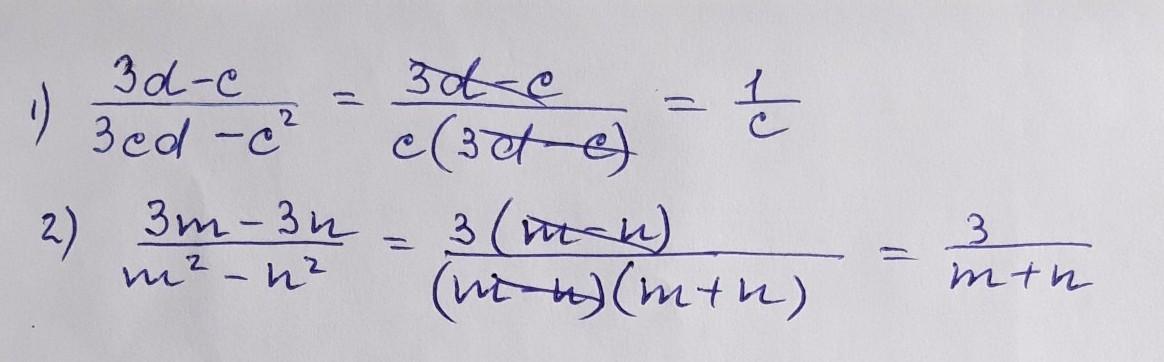 1) (3d-c)/(3cd-c²) = (3d-c)/(c(3d-c)) = 1/c
2) (3m-3n)/(m²-n²) = (3(m-n))/((m-n)(m+n)) = 3/(m+n)